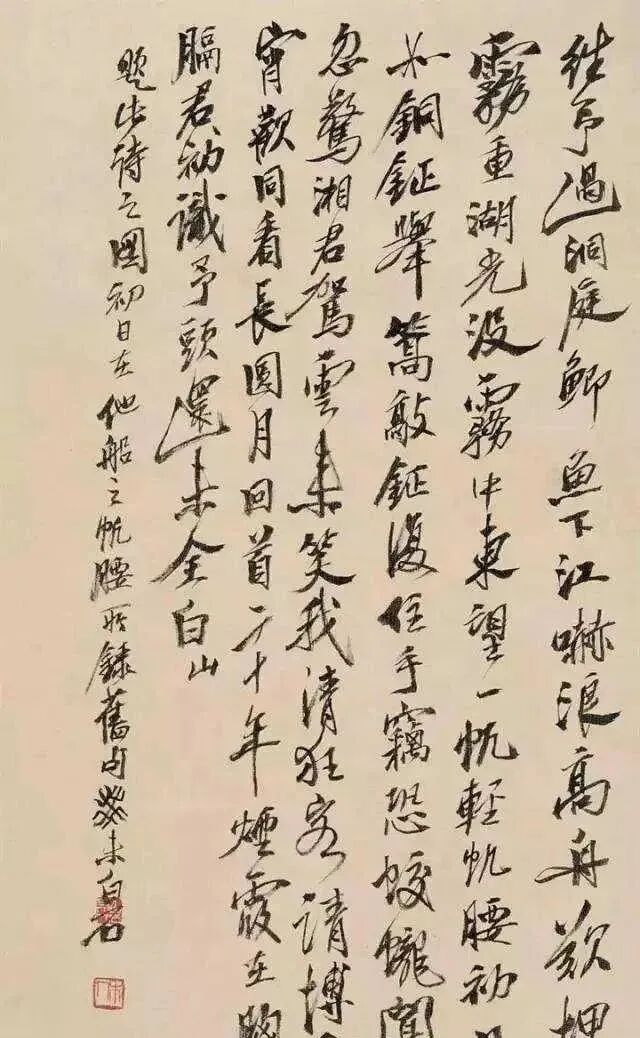 往予過洞庭鯽魚下江嚇浪高舟欲
霧重湖光沒霧中東望一帆輕帆腰初
如銅鉦舉篙敲鉦復住手竊恐蛟龍聞
忽驚湘君駕雲來笑我清狂客請博
宵歡同看長圓月回首二十年煙霞在胸
膈君初識予頭還未全白山
題此詩之圖初日在他船之帆腰錄舊句癸未白石